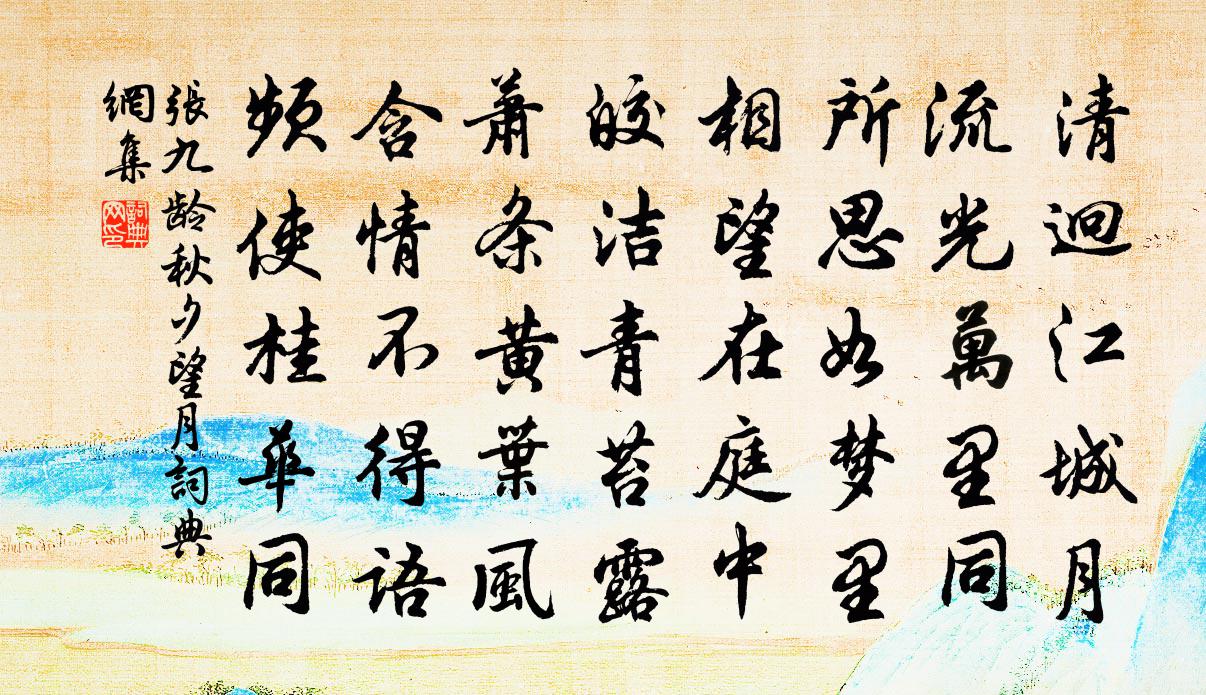 清迥江城月
流光萬里同
所思如梦里
相望在庭中
皎洁青苔露
蕭条黄葉風
含情不得語
頻使桂華同
張九龄秋夕望月詞典
網集
詞典
网印